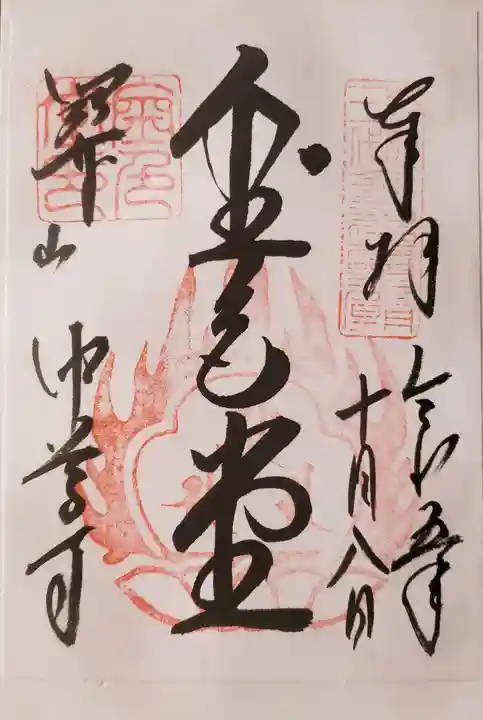 奉拝
令和五年
十月八日
金色堂
関山
中尊寺